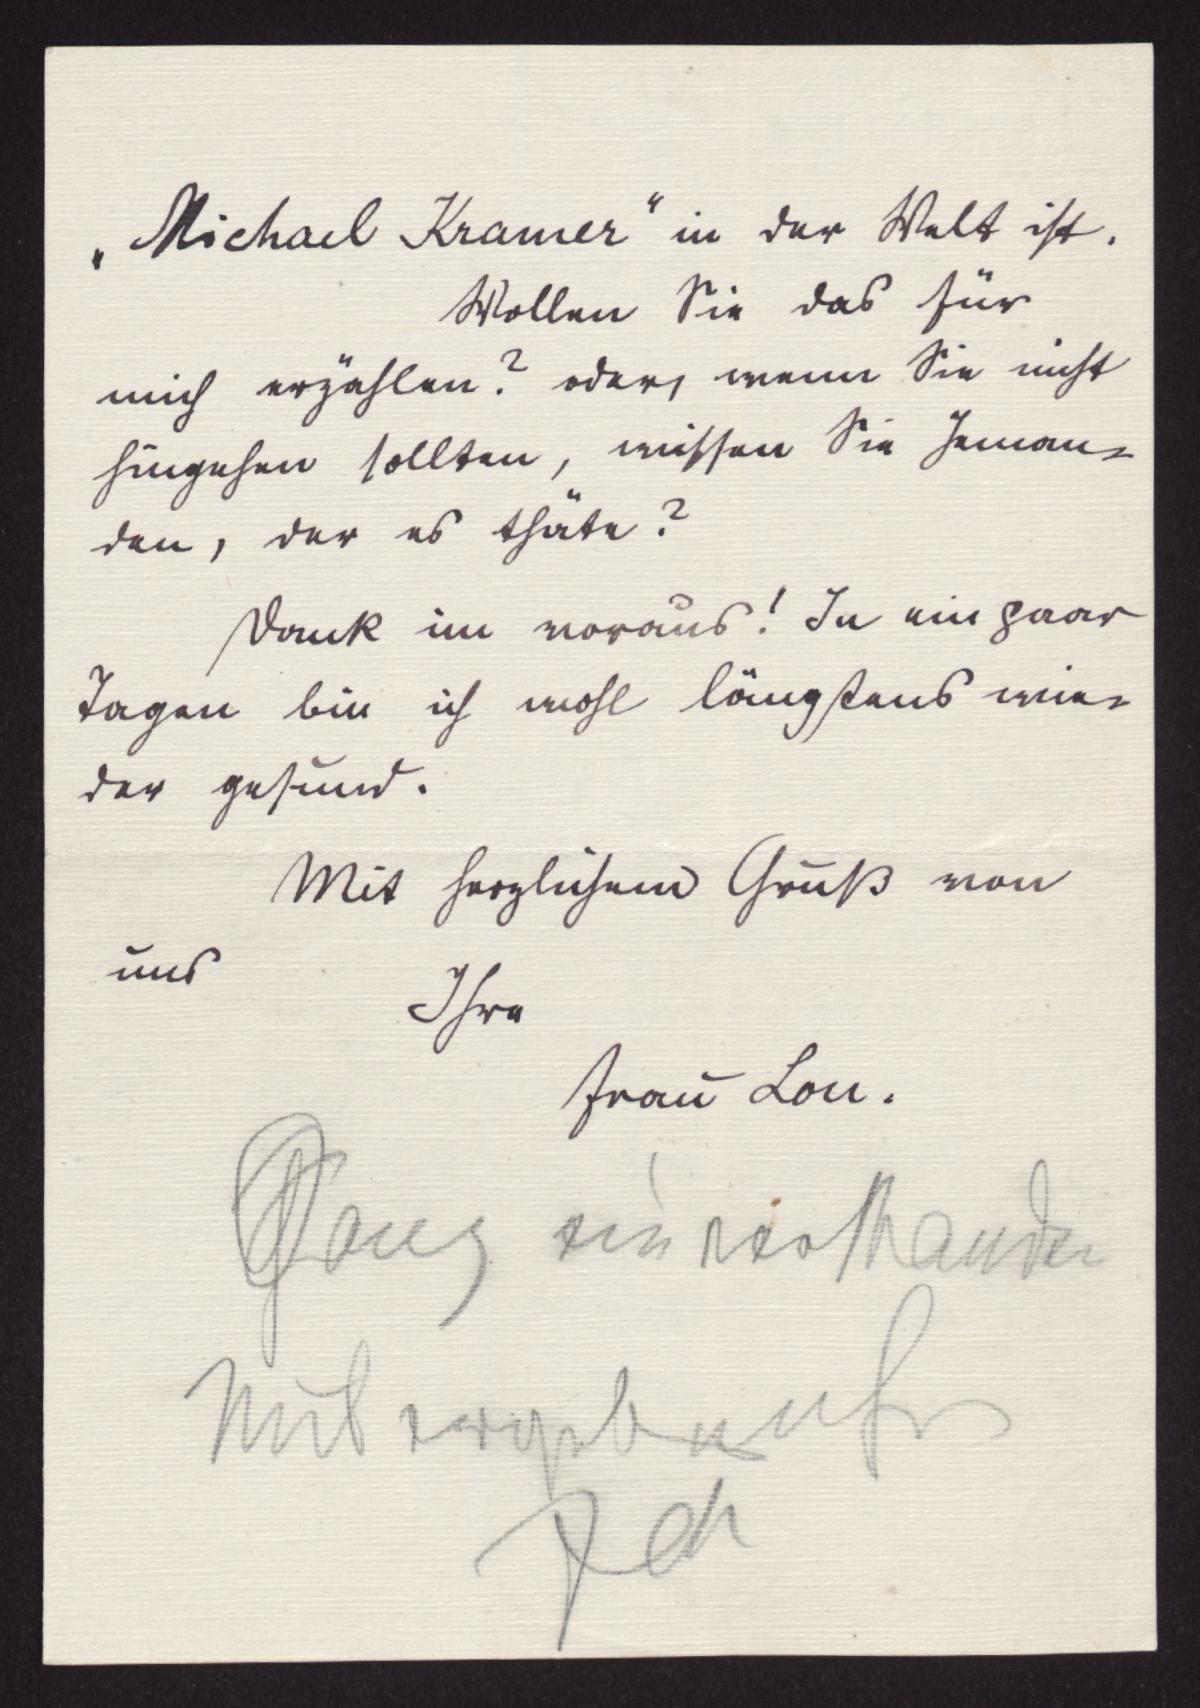 „Michael Kramer“ in der Welt ist.
Wollen Sie das für
mich erzählen? oder, wenn Sie nicht
hingehen sollten, wissen Sie Jeman-
den, der es thäte?
Dank im voraus! In ein paar
Tagen bin ich wohl längstens wie-
der gesund.
Mit herzlichem Gruß von
uns
Ihre
Frau Lou.
Ganz einverstanden